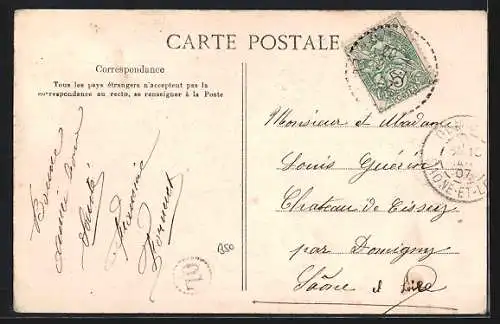 CARTE POSTALE
Correspondance
Tous les pays étrangers n'acceptent pas la
correspondance au recto, se renseigner à la Poste
Bonne
année bonne
santé
Monsieur et Madame
Louis Guérin
Chateau de
par Domigny
Saône et Loire
B50
07
SAONE-ET-L